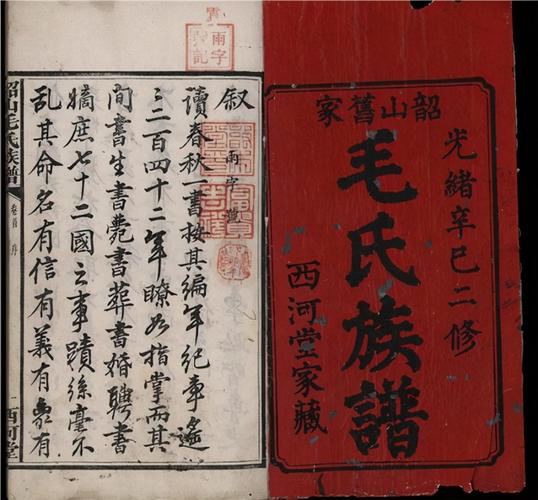 韶山舊家
光緒辛巳二修
毛氏族譜
西河堂家藏
叙
雨字號
讀春秋一書按其編年紀事遙
〻二百四十二年瞭如指掌而其
間書生書薨書葬書婚聘書
嫡庶七十二國之事蹟絲毫不
乱其命名有信有義有象有
韶山毛氏族譜
卷首
序
一
西河堂